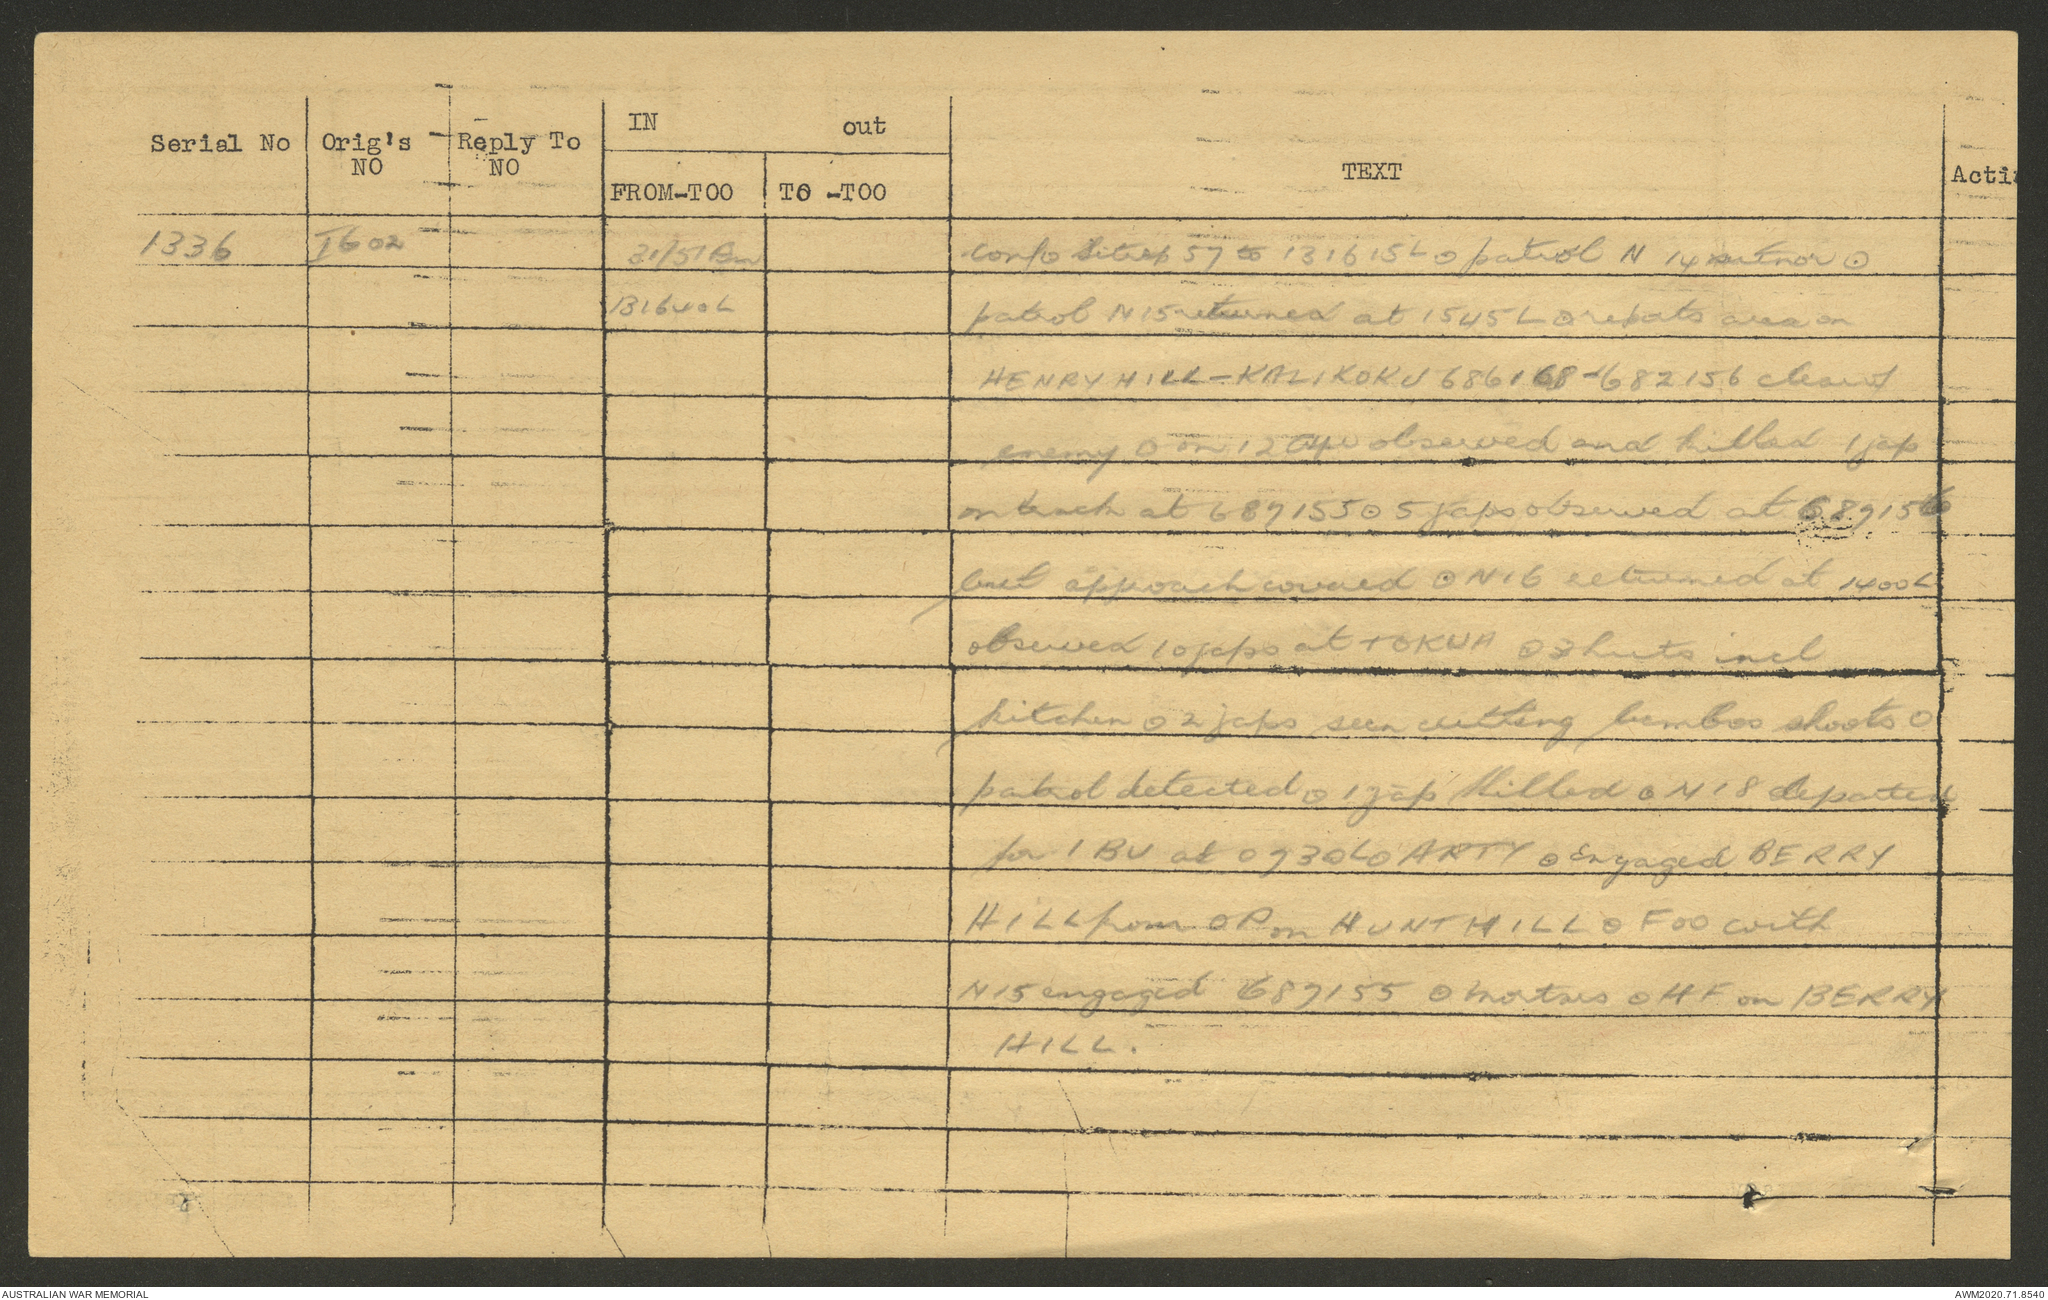 Serial No Orig's NO Reply To NO IN out FROM-TOO TO -TOO TEXT
1336 I602 31/51 Bn confo sitrep 57 to 131615L o patrol N 14 ⊙
131640L patrol N15 returned at 1545L ⊙ reports area on
HENRY HILL - KALIKOKU 686168 - 682156 clear of
enemy ⊙ on 12 observed and killed 1 jap
on track at 687155 ⊙ 5 japs observed at 687156
but approach covered ⊙ N16 returned at 1400L
observed 10 japs at TOKUA ⊙ 3 huts incl
kitchen ⊙ 2 japs seen cutting bamboo shoots ⊙
patrol detected ⊙ 1 jap killed ⊙ N18 departed
for IBU at 0730L ⊙ ARTY ⊙ engaged BERRY
HILL from OP on HUNT HILL ⊙ FOO with
N15 engaged 687155 ⊙ mortars ⊙ HF on BERRY
HILL.
AUSTRALIAN WAR MEMORIAL
AWM2020.71.8540